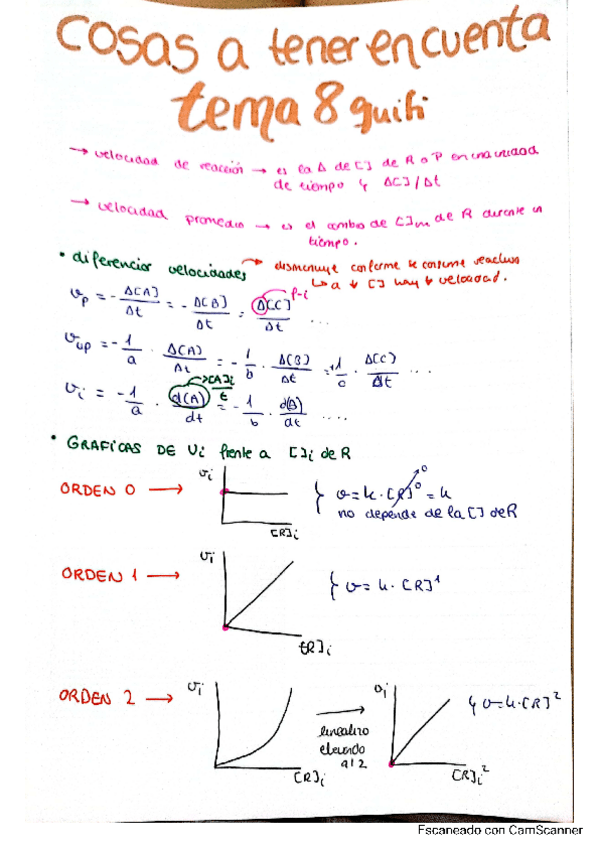 COSAS a tener en cuenta
tema 8 quifi
→ velocidad de reacción → es la Δ de [] de R o P en una unidad
de tiempo Δ[]/Δt
→ velocidad promedio → es el cambio de []m de R durante un
tiempo.
• diferenciar velocidades → disminuye conforme se consume reactivo
↳ a ↓ [] hay ↓ velocidad.
vp = - Δ[A]/Δt = - Δ[B]/Δt = Δ[C]/Δt ... f-i
vup = -1/a · Δ(A)/Δt = -1/b · Δ(B)/Δt = +1/c · Δ(C)/Δt ...
vi = -1/a · d(A)/dt = -1/b · d(B)/dt .... → [A]i/t
• GRAFICAS DE Vi frente a []i de R
ORDEN 0 → vi [R]i } v = k · [R]⁰ = k
no depende de la [] de R
ORDEN 1 → vi [R]i } v = k · [R]¹
ORDEN 2 → vi [R]i → vi [R]i² v = k · [R]²
linealizo
elevando
al 2
Escaneado con CamScanner